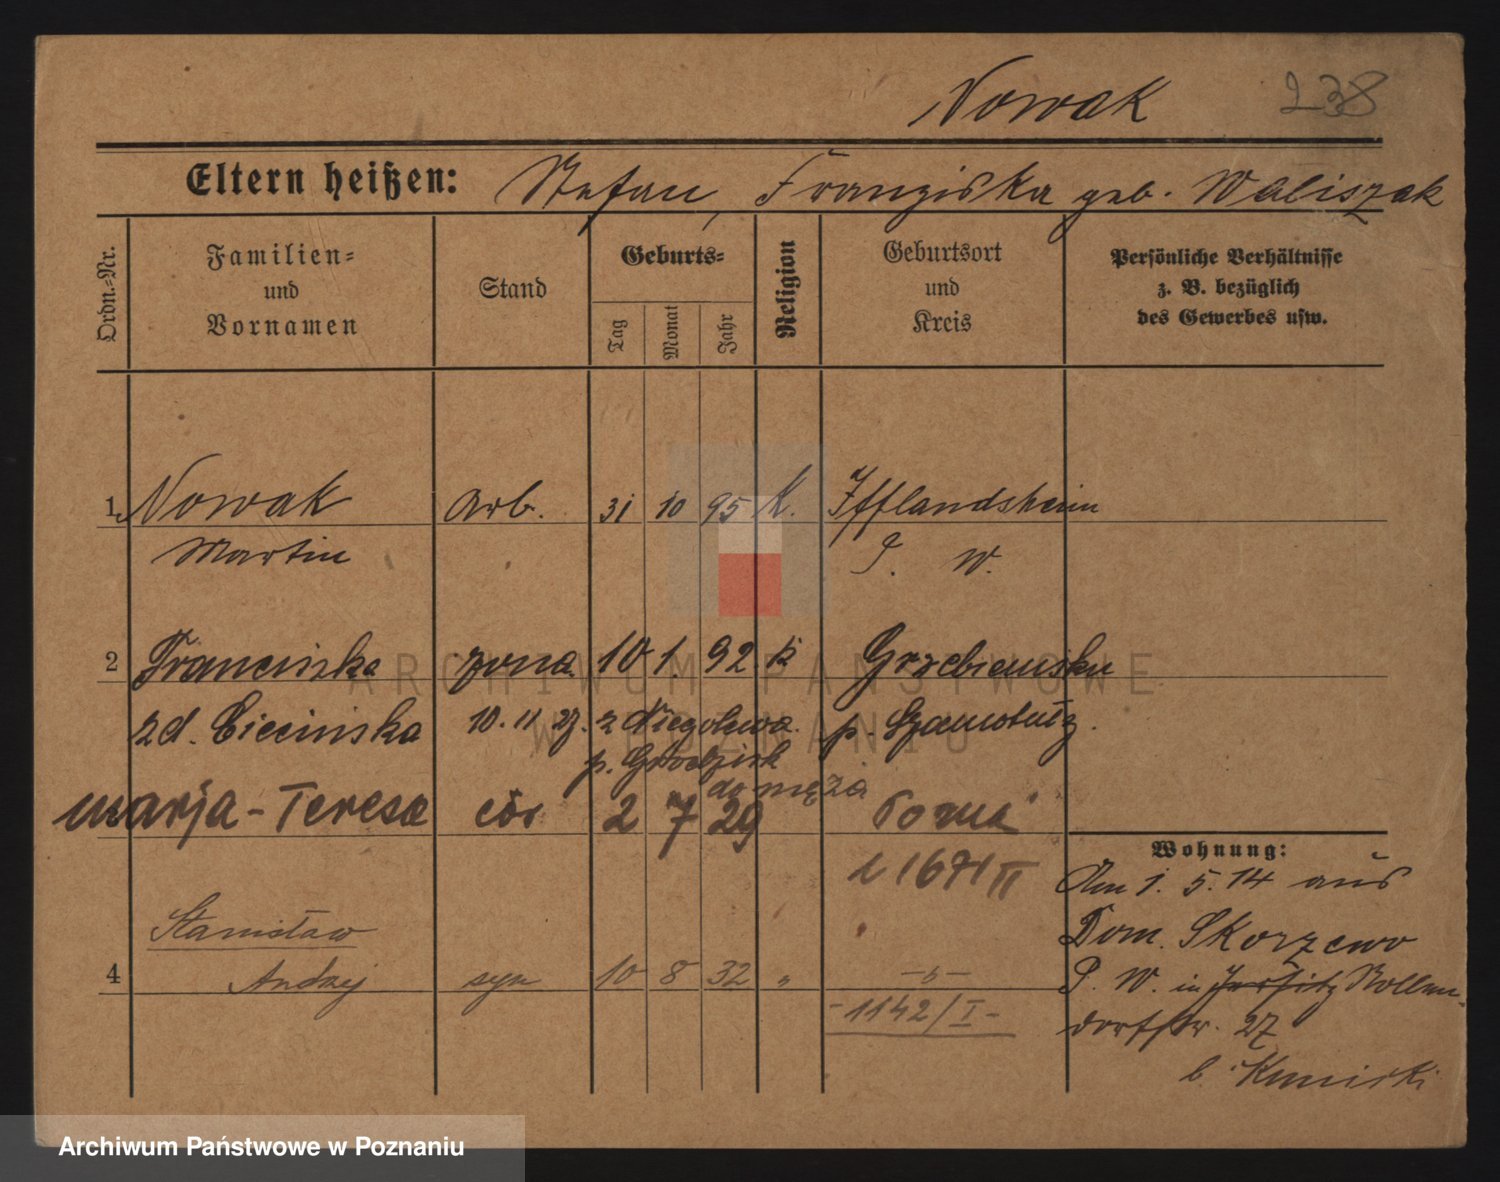 Nowak 238
Eltern heißen: Stefan, Franziska geb. Waliszak
Ordn.-Nr.
Familien-
und
Vornamen
Stand
Geburts-
Tag
Monat
Jahr
Religion
Geburtsort
und
Kreis
Persönliche Verhältnisse
z. B. bezüglich
des Gewerbes usw.
1. Nowak Arb. 31 10 95 K. Ifflandsheim
Martin P. W.
2 Franciszka żona 10 1. 92. k Grzebienisku
zd. Ciecińska 10. 11 27. z Niegolewa p. Szamotuły.
p. Grodzisk
do męża
Marja-Teresa cór 2 7 29 Pozna
1671 II
Stanisław
4 Andrzej syn 10 8 32 " -"-
-1142/I-
Wohnung:
Am 1. 5. 14 aus
Dom. Skorzewo
P. W. in Jersitz Bollen-
dorfstr. 27
b.
ARCHIWUM PAŃSTWOWE
W POZNANIU
Archiwum Państwowe w Poznaniu